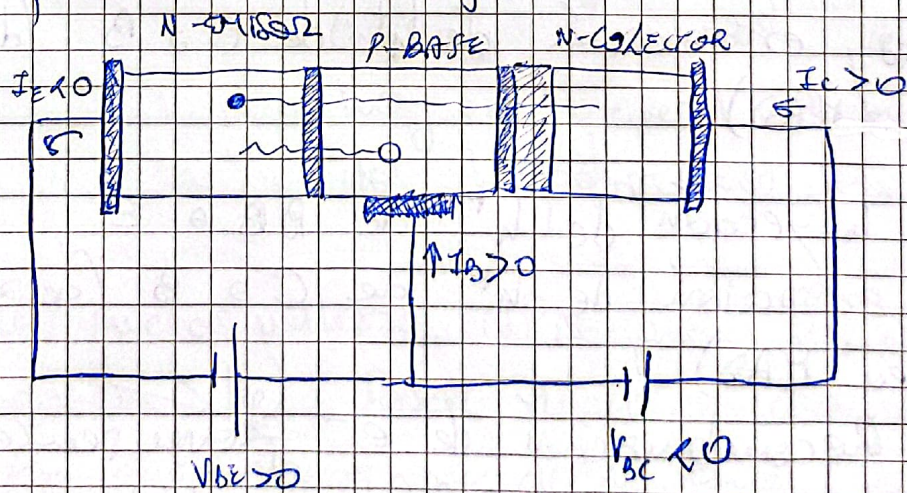 N-EMISOR
P-BASE
N-COLECTOR
I_E<0
I_C>0
↑I_B>0
V_BE>0
V_BC<0